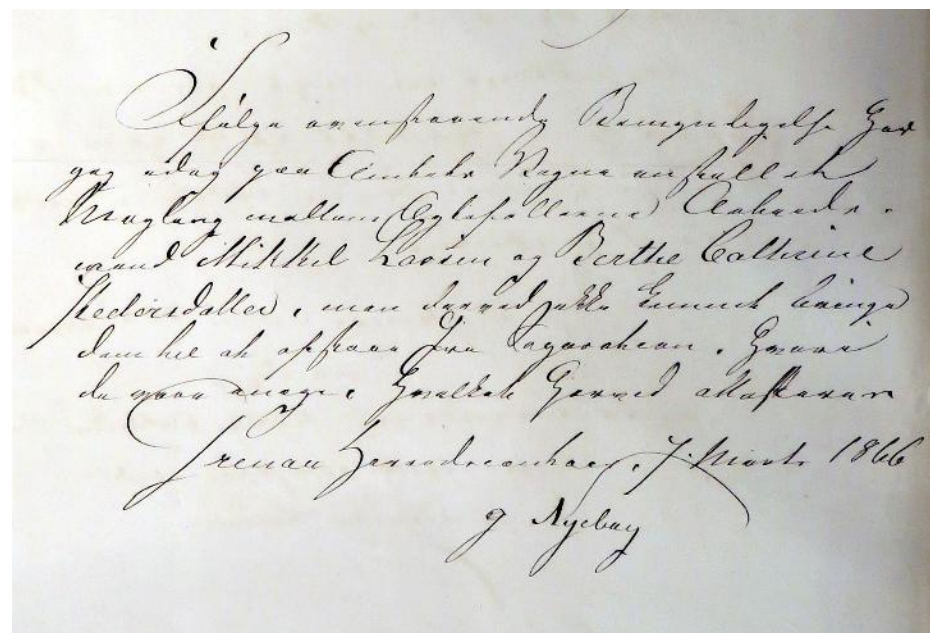 Ifølge ovenstaaende Bemyndigelse har
jeg idag paa Amtets Vegne anstillet
Mægling mellem Ægtefællerne Arbeids-
mand Mikkel Larsen og Berthe Cathrine
Pedersdatter, men derved ikke kunnet bringe
dem til at afstaae fra Separation, hvori
de vare enige, hvilket herved attesteres
Grenaa Herredscontoir, 7 Marts 1866